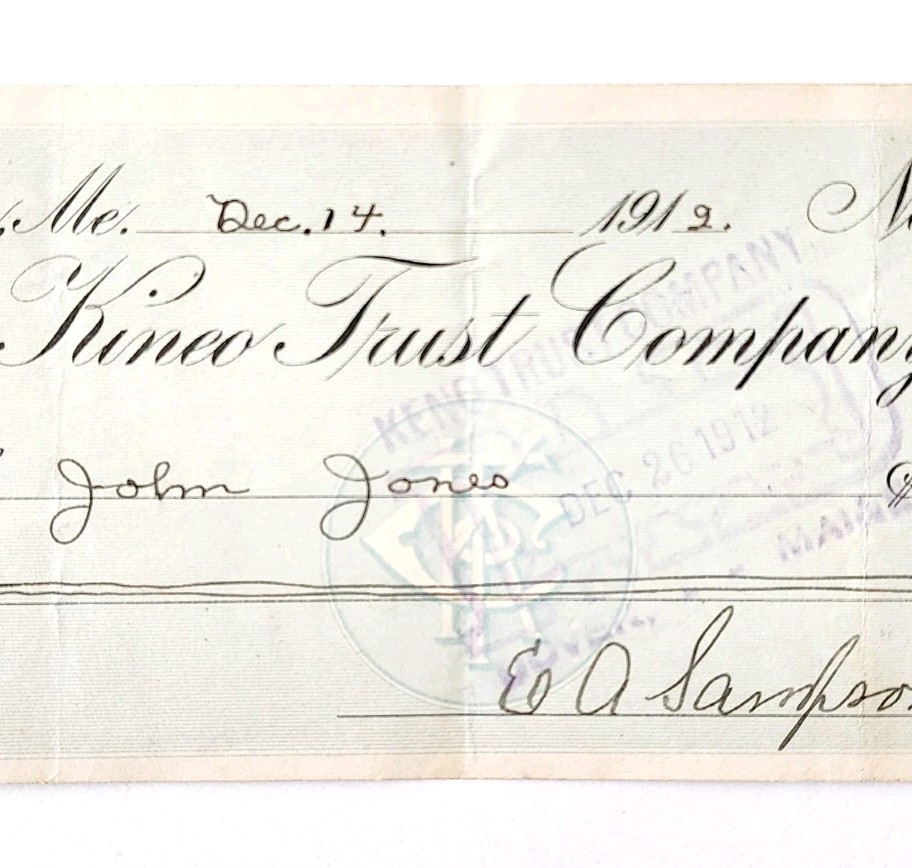 Me. Dec. 14. 1912. No
Kineo Trust Company
KINEO TRUST COMPANY
John Jones $
DEC 26 1912
MAINE
E A Sampso